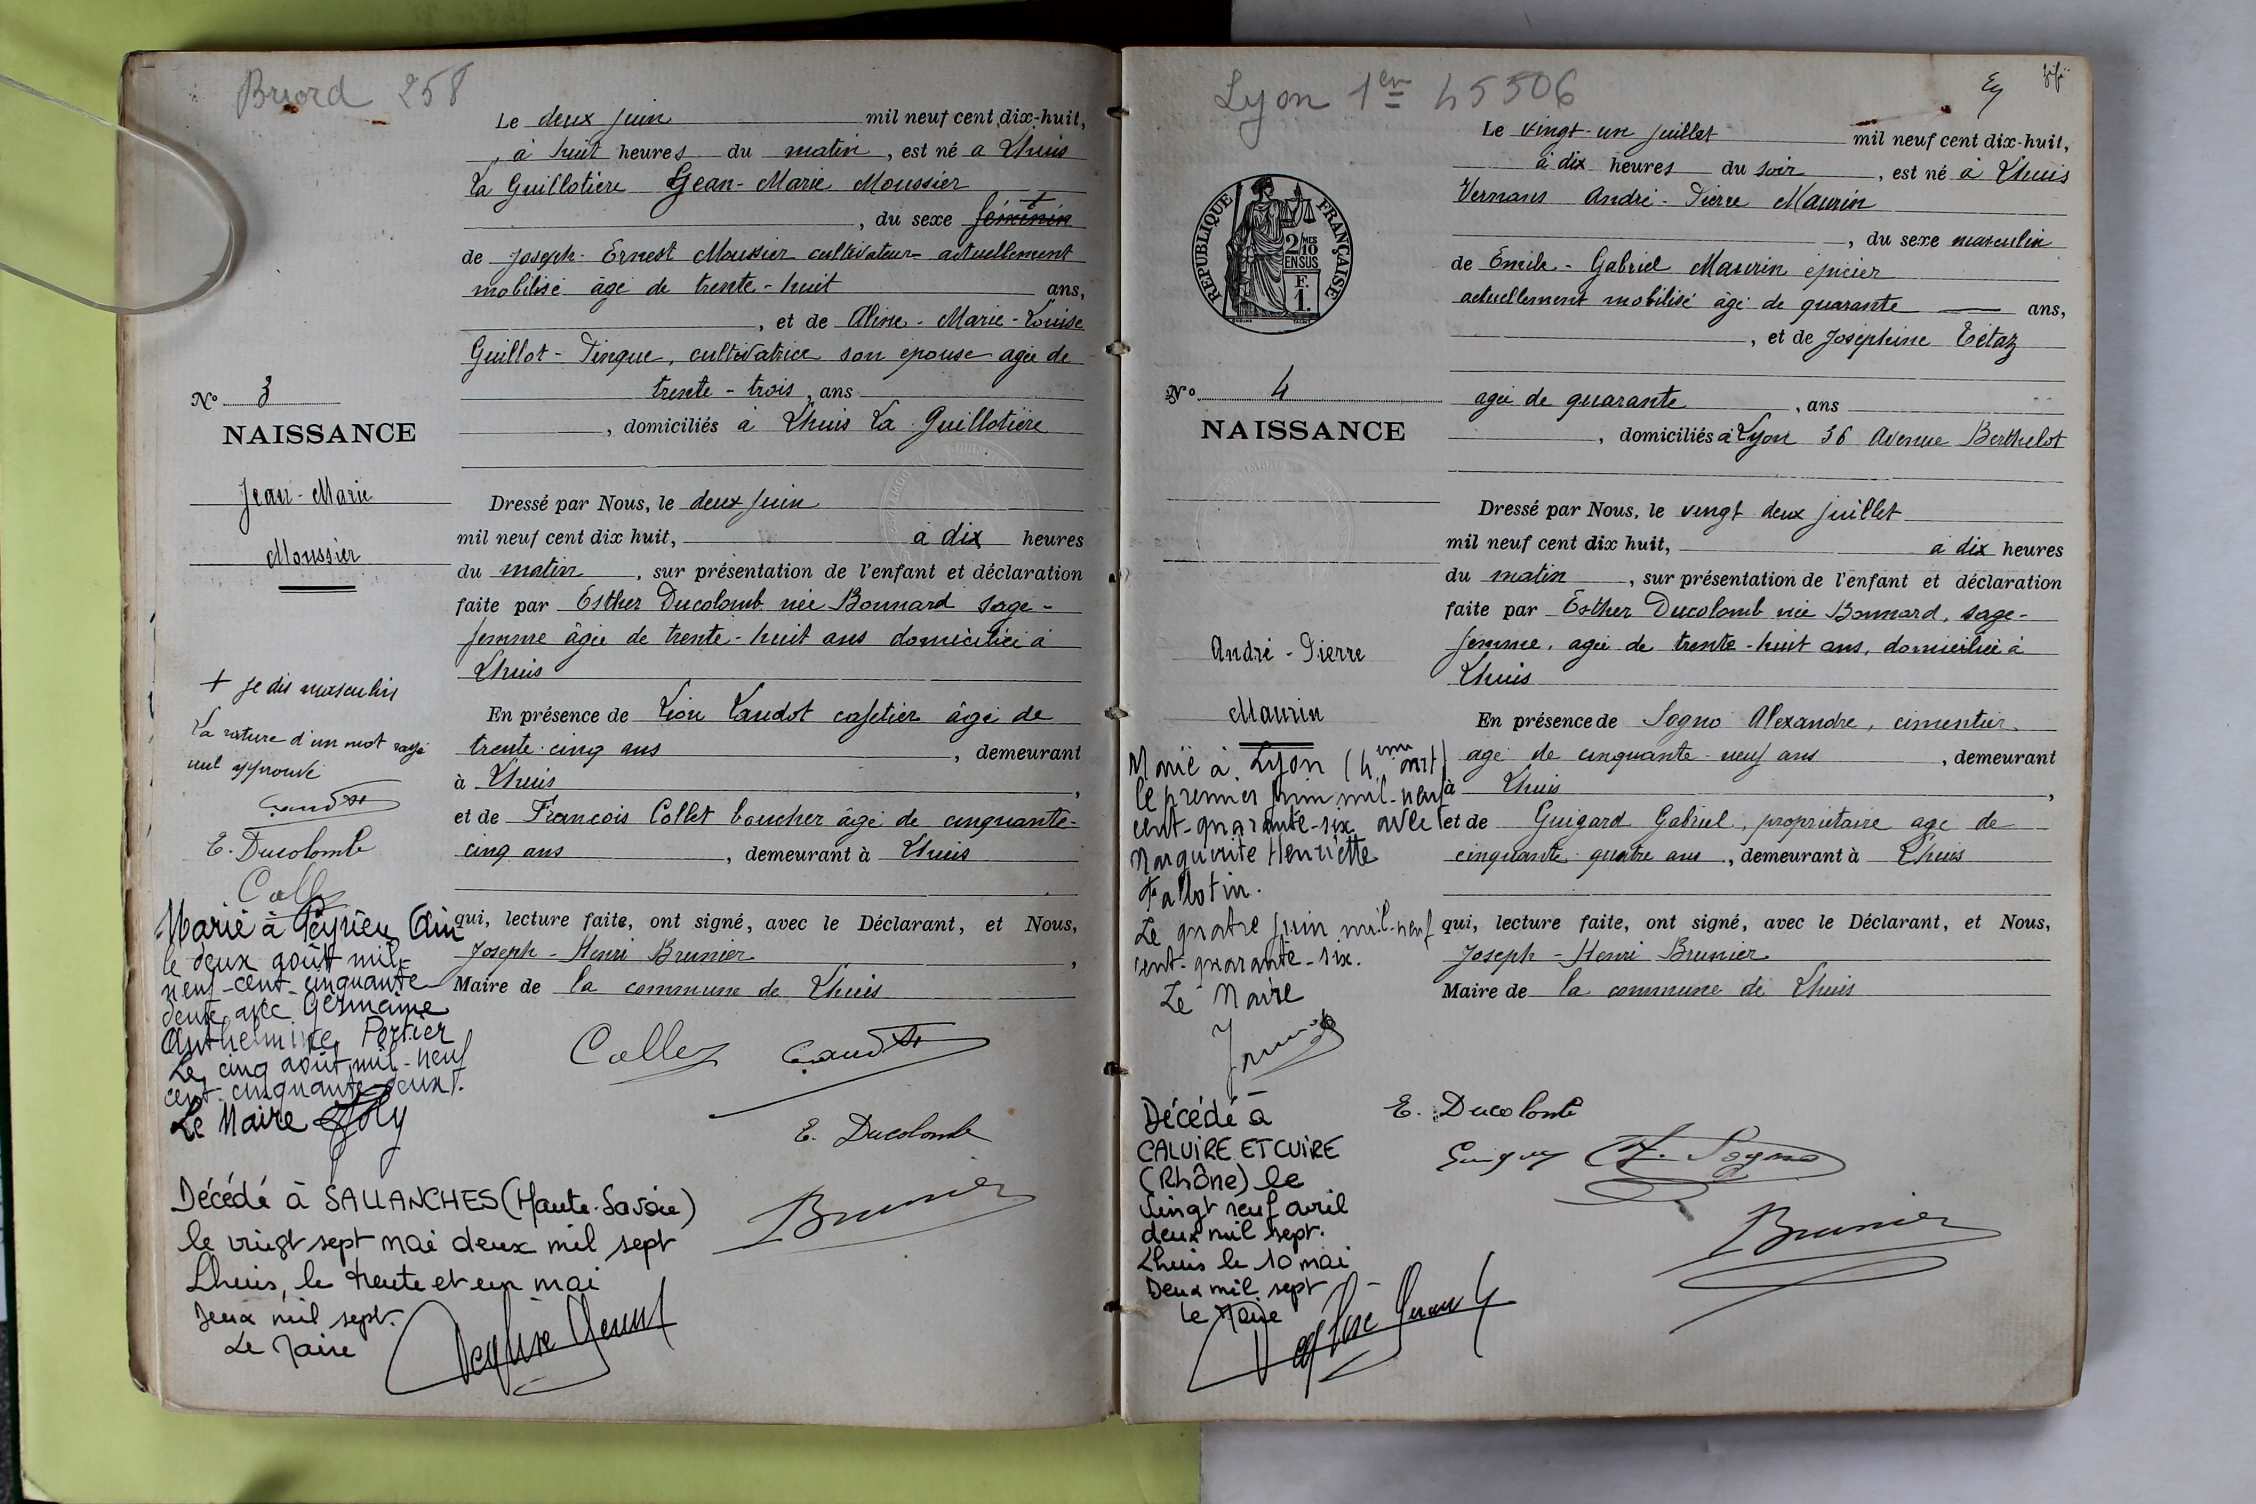 Briord 258
Le deux juin mil neuf cent dix-huit,
, à huit heures du matin, est né à Lhuis
La Guillotière Jean-Marie Moussier
, du sexe féminin +
de Joseph-Ernest Moussier cultivateur actuellement
mobilisé âgé de trente-huit ans,
, et de Aline-Marie-Louise
Guillot-Pingue, cultivatrice son épouse agée de
trente-trois, ans
, domiciliés à Lhuis La Guillotière
N° 3
NAISSANCE
Jean-Marie
Moussier
Dressé par Nous, le deux juin
mil neuf cent dix huit, à dix heures
du matin, sur présentation de l'enfant et déclaration
faite par Esther Ducolomb née Bonnard sage-
femme âgée de trente-huit ans domiciliée à
Lhuis
En présence de Léon Landot cafetier âgé de
trente-cinq ans, demeurant
à Lhuis,
et de François Collet boucher âgé de cinquante-
cinq ans, demeurant à Lhuis
qui, lecture faite, ont signé, avec le Déclarant, et Nous,
Joseph-Henri Brunier,
Maire de la commune de Lhuis
+ je dis masculin
La rature d'un mot rayé
nul approuvé
E. Ducolomb
Marié à Peyrieu Ain
le deux août mil-
neuf-cent-cinquante
deux avec Germaine
Anthelmine Portier
Le cinq août mil-neuf
cent-cinquante-deux.
Le Maire Joly
Collet
E. Ducolomb
Brunier
Décédé à SALLANCHES (Haute-Savoie)
le vingt sept mai deux mil sept
Lhuis, le trente et un mai
deux mil sept.
Le Maire
Lyon 1er 45506
Le vingt-un juillet mil neuf cent dix-huit,
à dix heures du soir, est né à Lhuis
Vernans André-Pierre Maurin
, du sexe masculin
de Emile-Gabriel Maurin épicier
actuellement mobilisé âgé de quarante ans,
, et de Joséphine Tétaz
agée de quarante, ans
, domiciliés à Lyon 36 Avenue Berthelot
RÉPUBLIQUE FRANÇAISE
2/10 MES
EN SUS
F.
1.
N° 4
NAISSANCE
André-Pierre
Maurin
Dressé par Nous, le vingt deux juillet
mil neuf cent dix huit, à dix heures
du matin, sur présentation de l'enfant et déclaration
faite par Esther Ducolomb née Bonnard, sage-
femme, agée de trente-huit ans, domiciliée à
Lhuis
En présence de Sogno Alexandre, cimentier
agé de cinquante-neuf ans, demeurant
à Lhuis,
et de Guigard Gabriel, propriétaire agé de
cinquante quatre ans, demeurant à Lhuis
qui, lecture faite, ont signé, avec le Déclarant, et Nous,
Joseph-Henri Brunier
Maire de la commune de Lhuis
Marié à Lyon (4ème arrt)
le premier juin mil-neuf
cent-quarante-six avec
Marguerite Henriette
Fallotin.
Le quatre juin mil-neuf
cent-quarante-six.
Le Maire
E. Ducolomb
A. Sogno
Brunier
Décédé à
CALUIRE ET CUIRE
(Rhône) le
vingt neuf avril
deux mil sept.
Lhuis le 10 mai
Deux mil sept
Le Maire